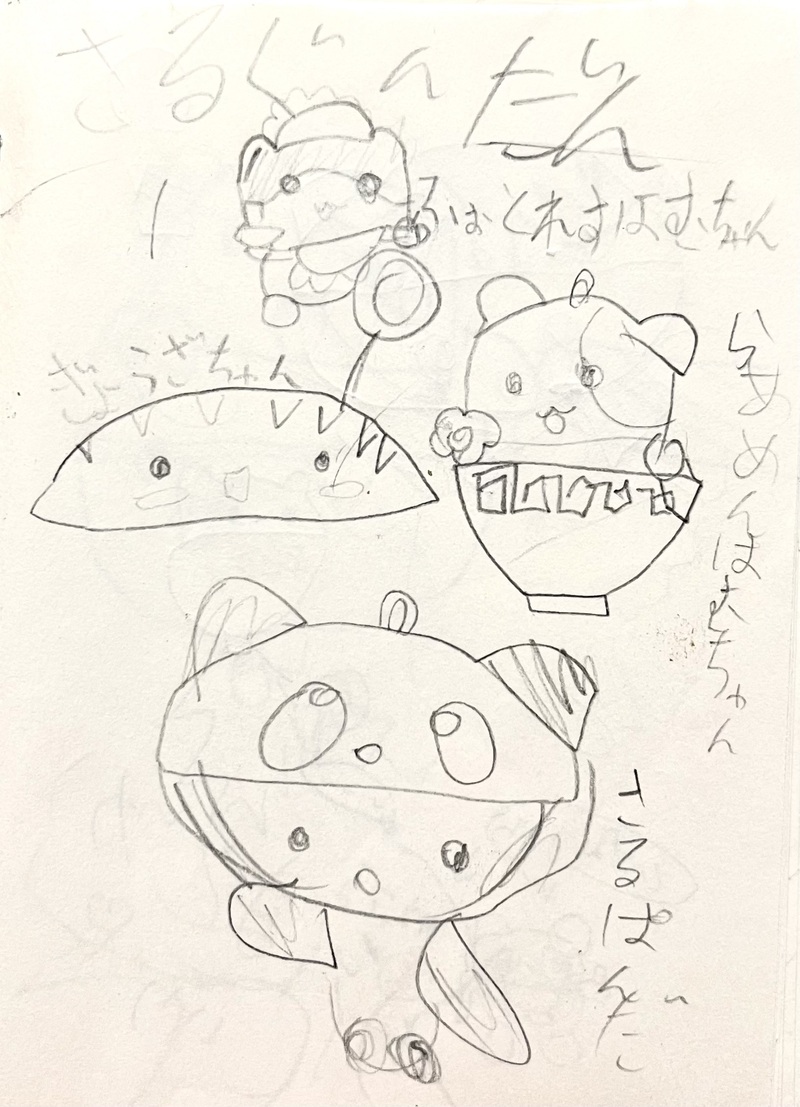 さるぐんだん
とれすはむちゃん
ぎょうざちゃん
らあめんはむちゃん
さるぱんだ